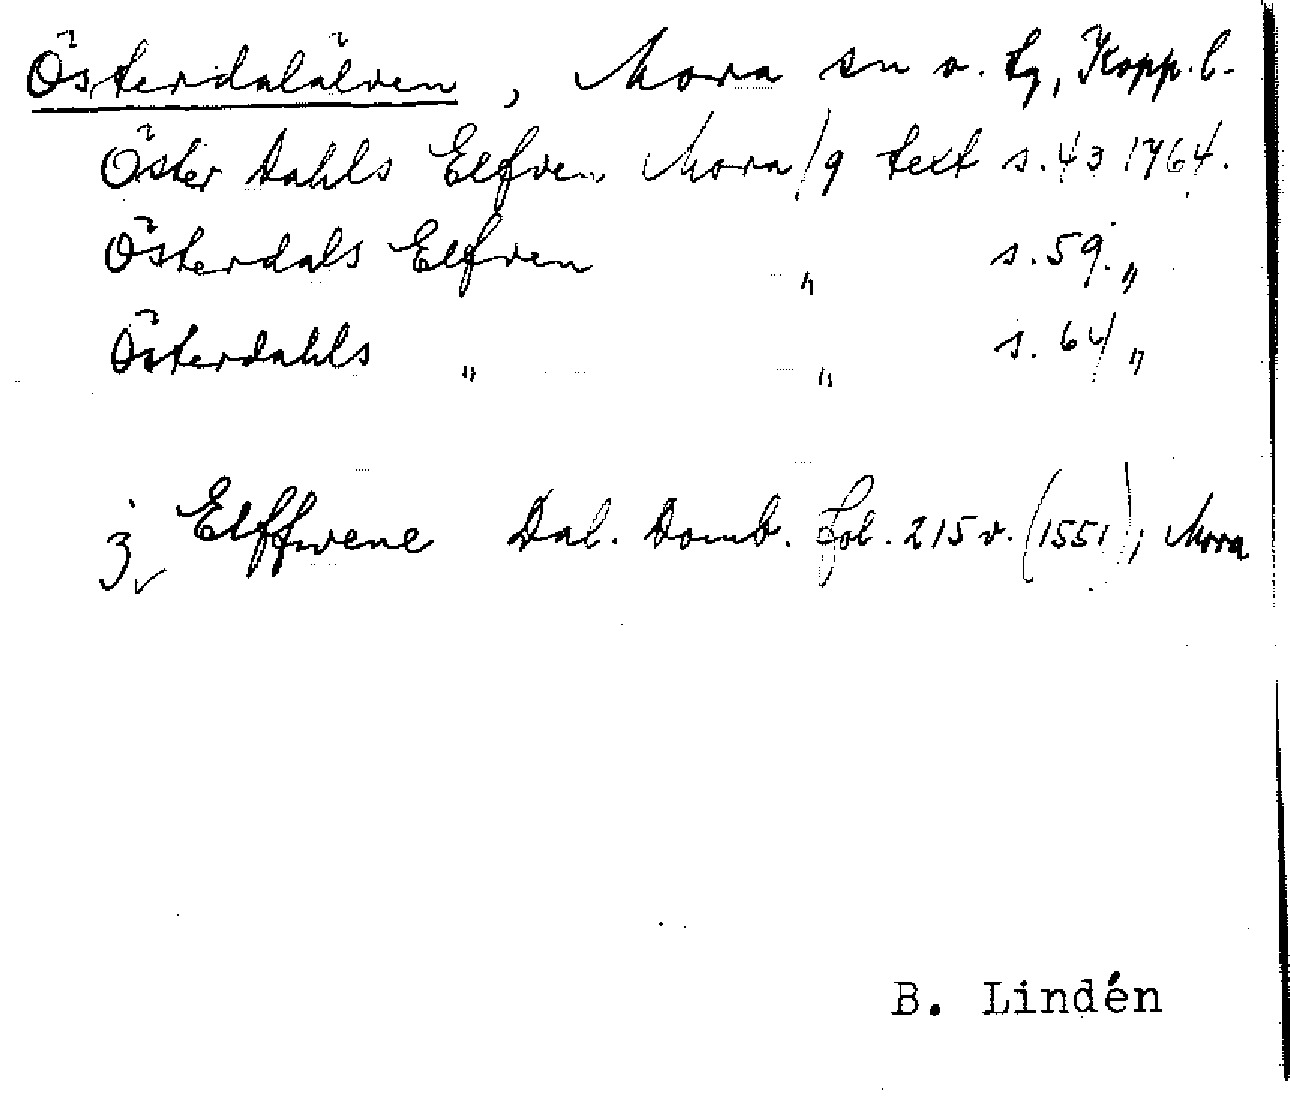 Österdalälven, Mora sn o. tg, Kopp. l.
Öster Dahls Elfven Mora/9 text s. 43 1764.
Österdals Elfven " s. 59. "
Österdahls " " s. 64/ "
j Elffwene Dal. Domb. fol. 215 v. (1551), Mora
B. Lindén